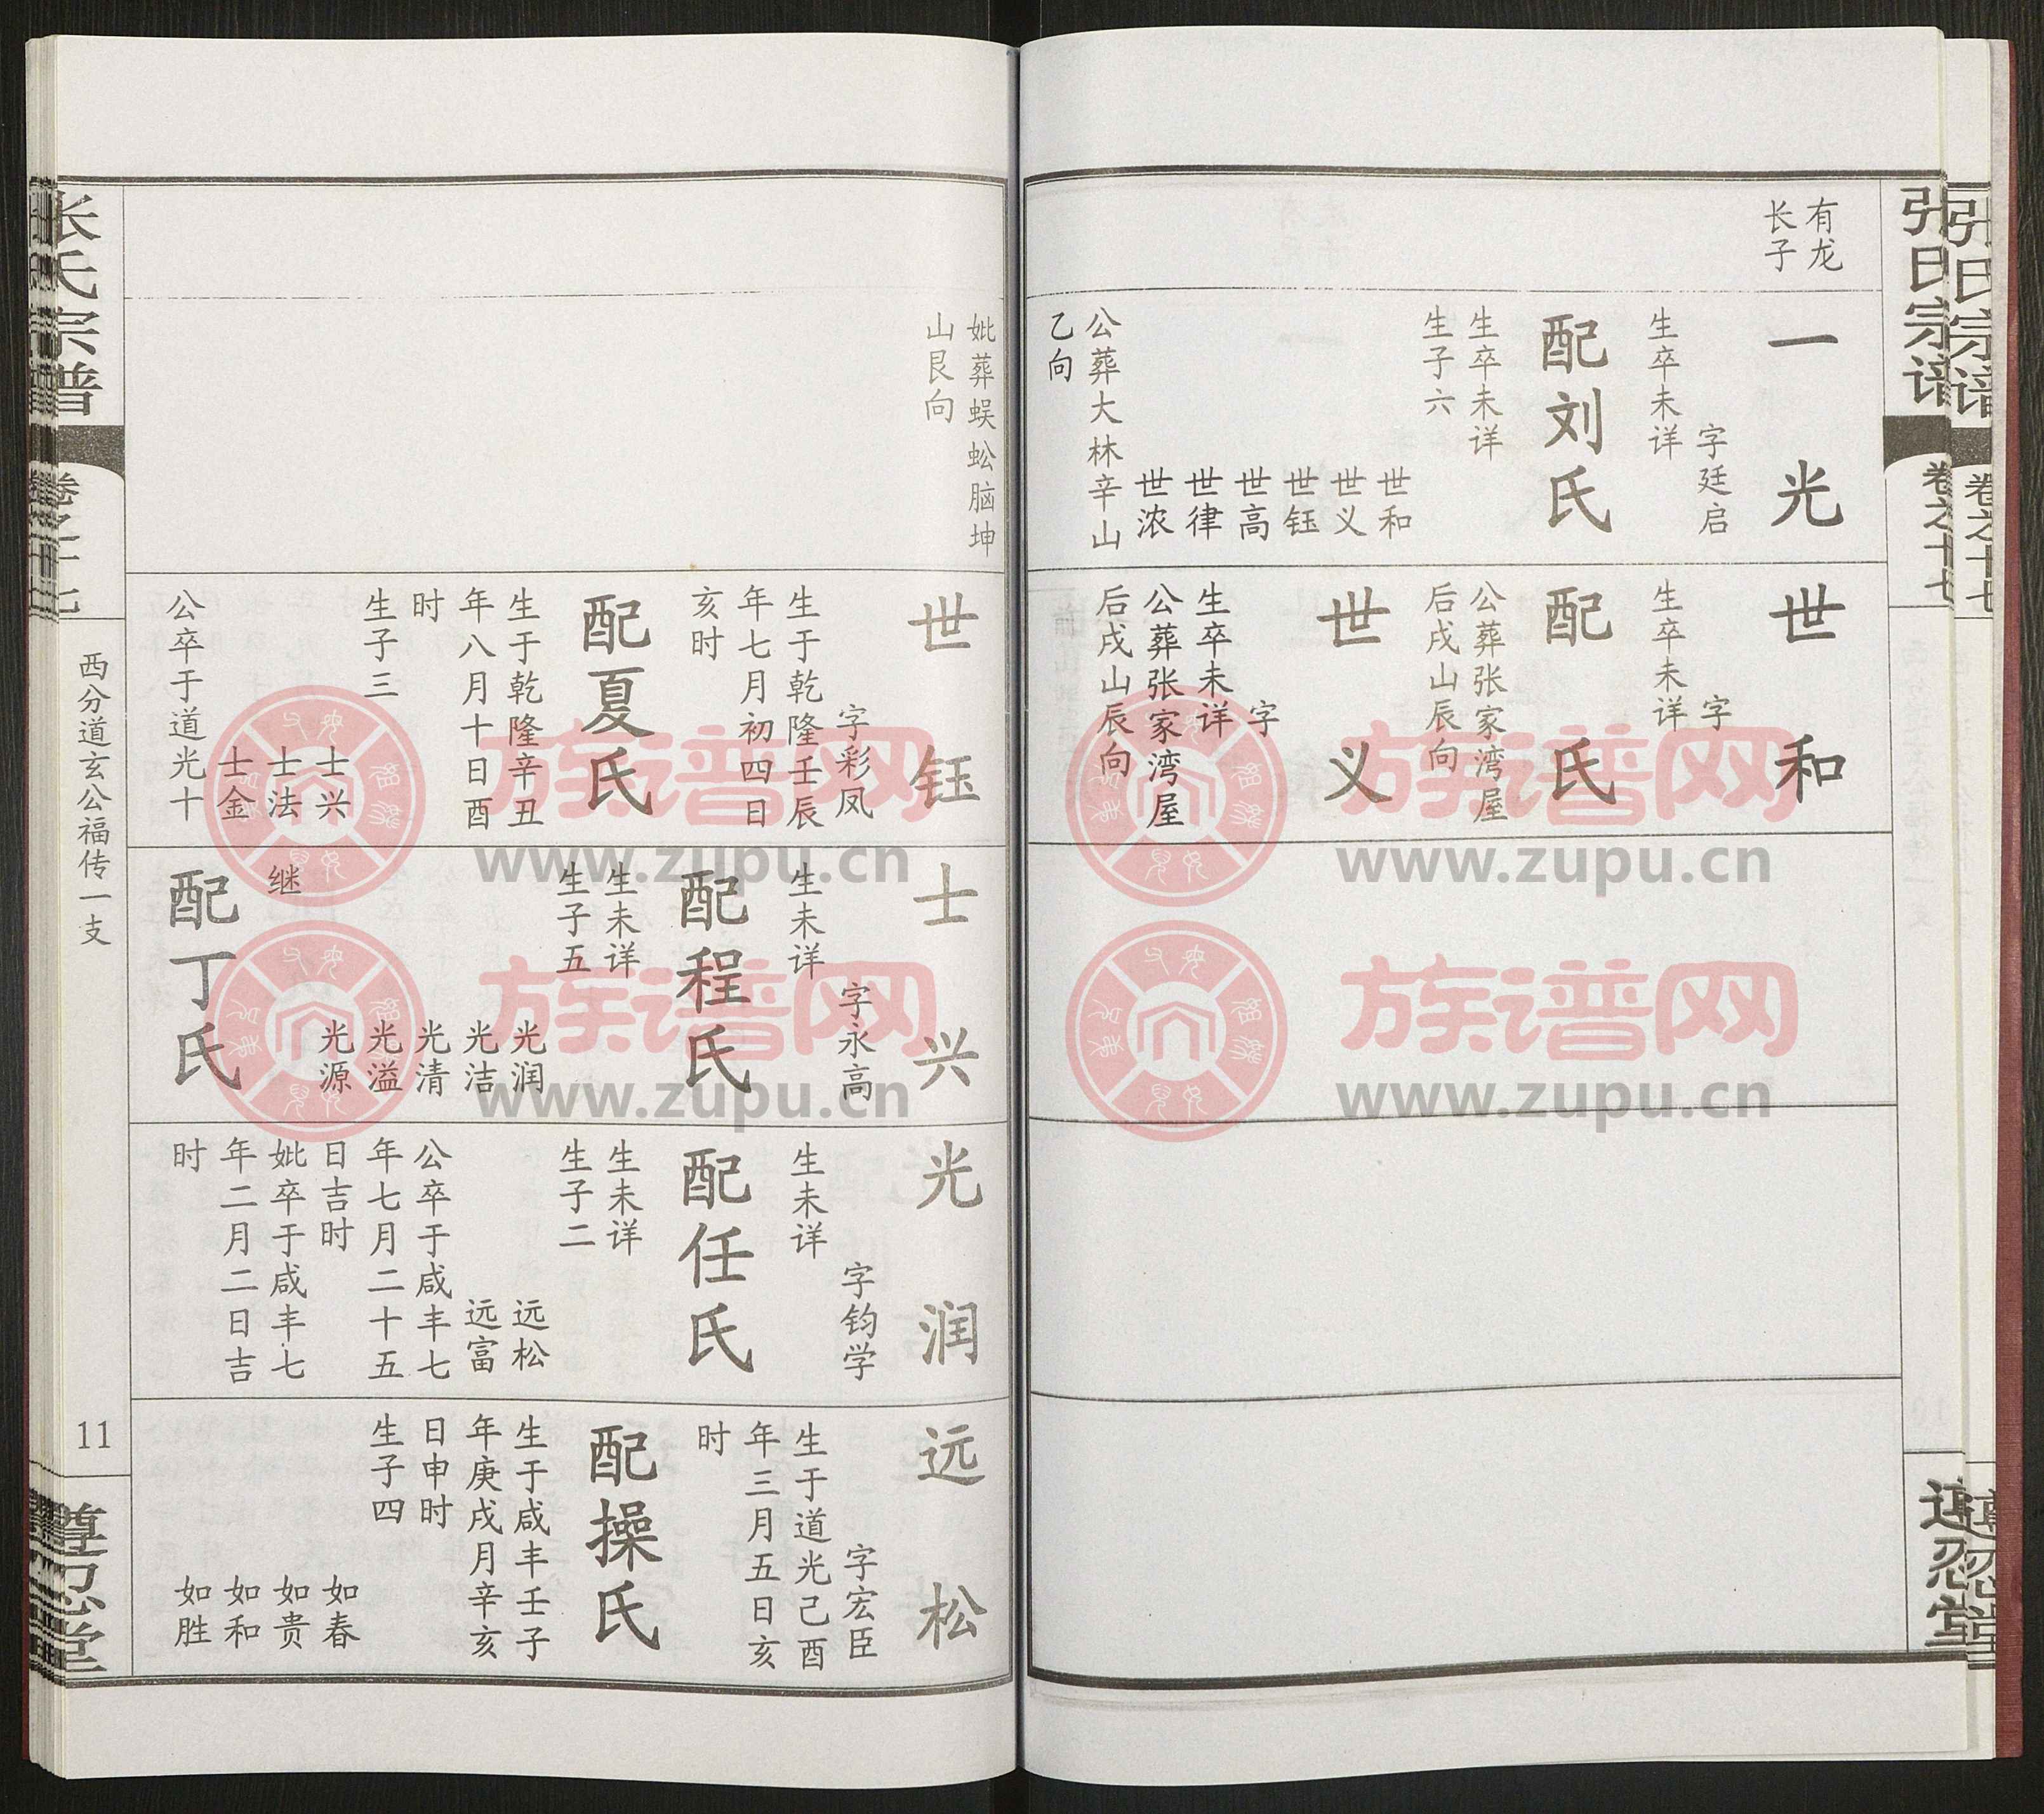 张氏宗谱
卷之十七
遵忍堂
张氏宗谱
卷之十七
有龙
长子
一光
字廷启
生卒未详
配刘氏
生卒未详
生子六
世和
世义
世钰
世高
世律
世浓
公葬大林辛山
乙向
世和
字
生卒未详
配氏
公葬张家湾屋
后戌山辰向
世义
字
生卒未详
公葬张家湾屋
后戌山辰向
妣葬蜈蚣脑坤
山艮向
世钰
字彩凤
生于乾隆壬辰
年七月初四日
亥时
配夏氏
生于乾隆辛丑
年八月十日酉
时
生子三
士兴
士法
士金
公卒于道光十
士兴
字永高
生未详
配程氏
生未详
生子五
光润
光洁
光清
光溢
光源
继
配丁氏
光润
字钧学
生未详
配任氏
生未详
生子二
远松
远富
公卒于咸丰七
年七月二十五
日吉时
妣卒于咸丰七
年二月二日吉
时
远松
字宏臣
生于道光己酉
年三月五日亥
时
配操氏
生于咸丰壬子
年庚戌月辛亥
日申时
生子四
如春
如贵
如和
如胜
张氏宗谱
卷之十七
西分道玄公福传一支
11
遵忍堂
族谱网
www.zupu.cn
族谱网
www.zupu.cn
族谱网
www.zupu.cn
族谱网
www.zupu.cn